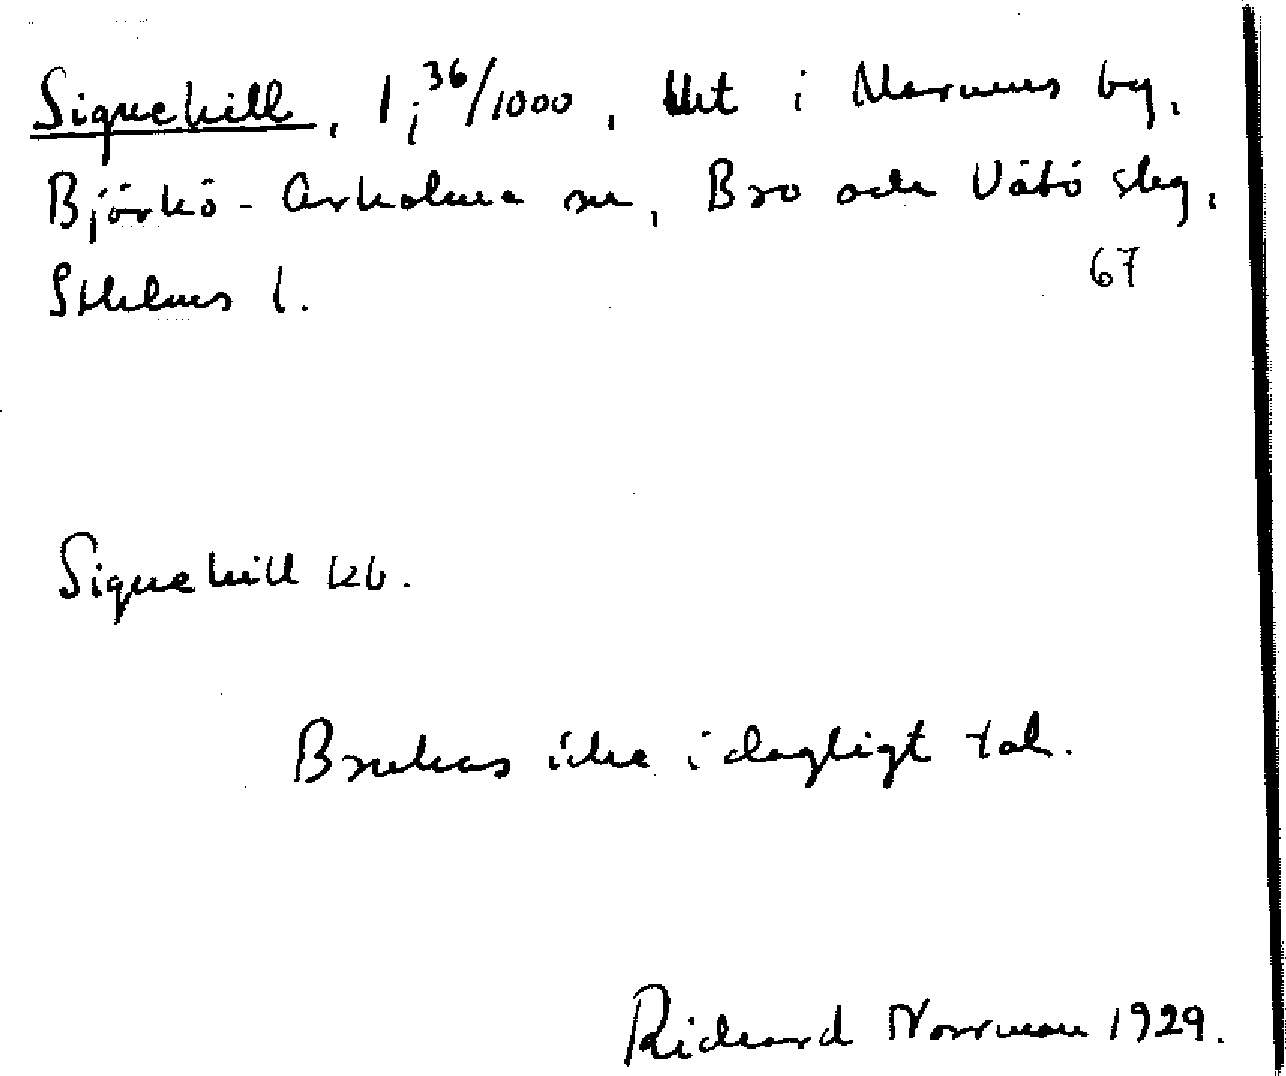 Signehill, 1;³⁶/1000, lht i Marums by,
Björkö-Arholma sn, Bro och Vätö slg,
Sthlms l.
67
Signehill kb.
Brukas icke i dagligt tal.
Richard Norrman 1929.